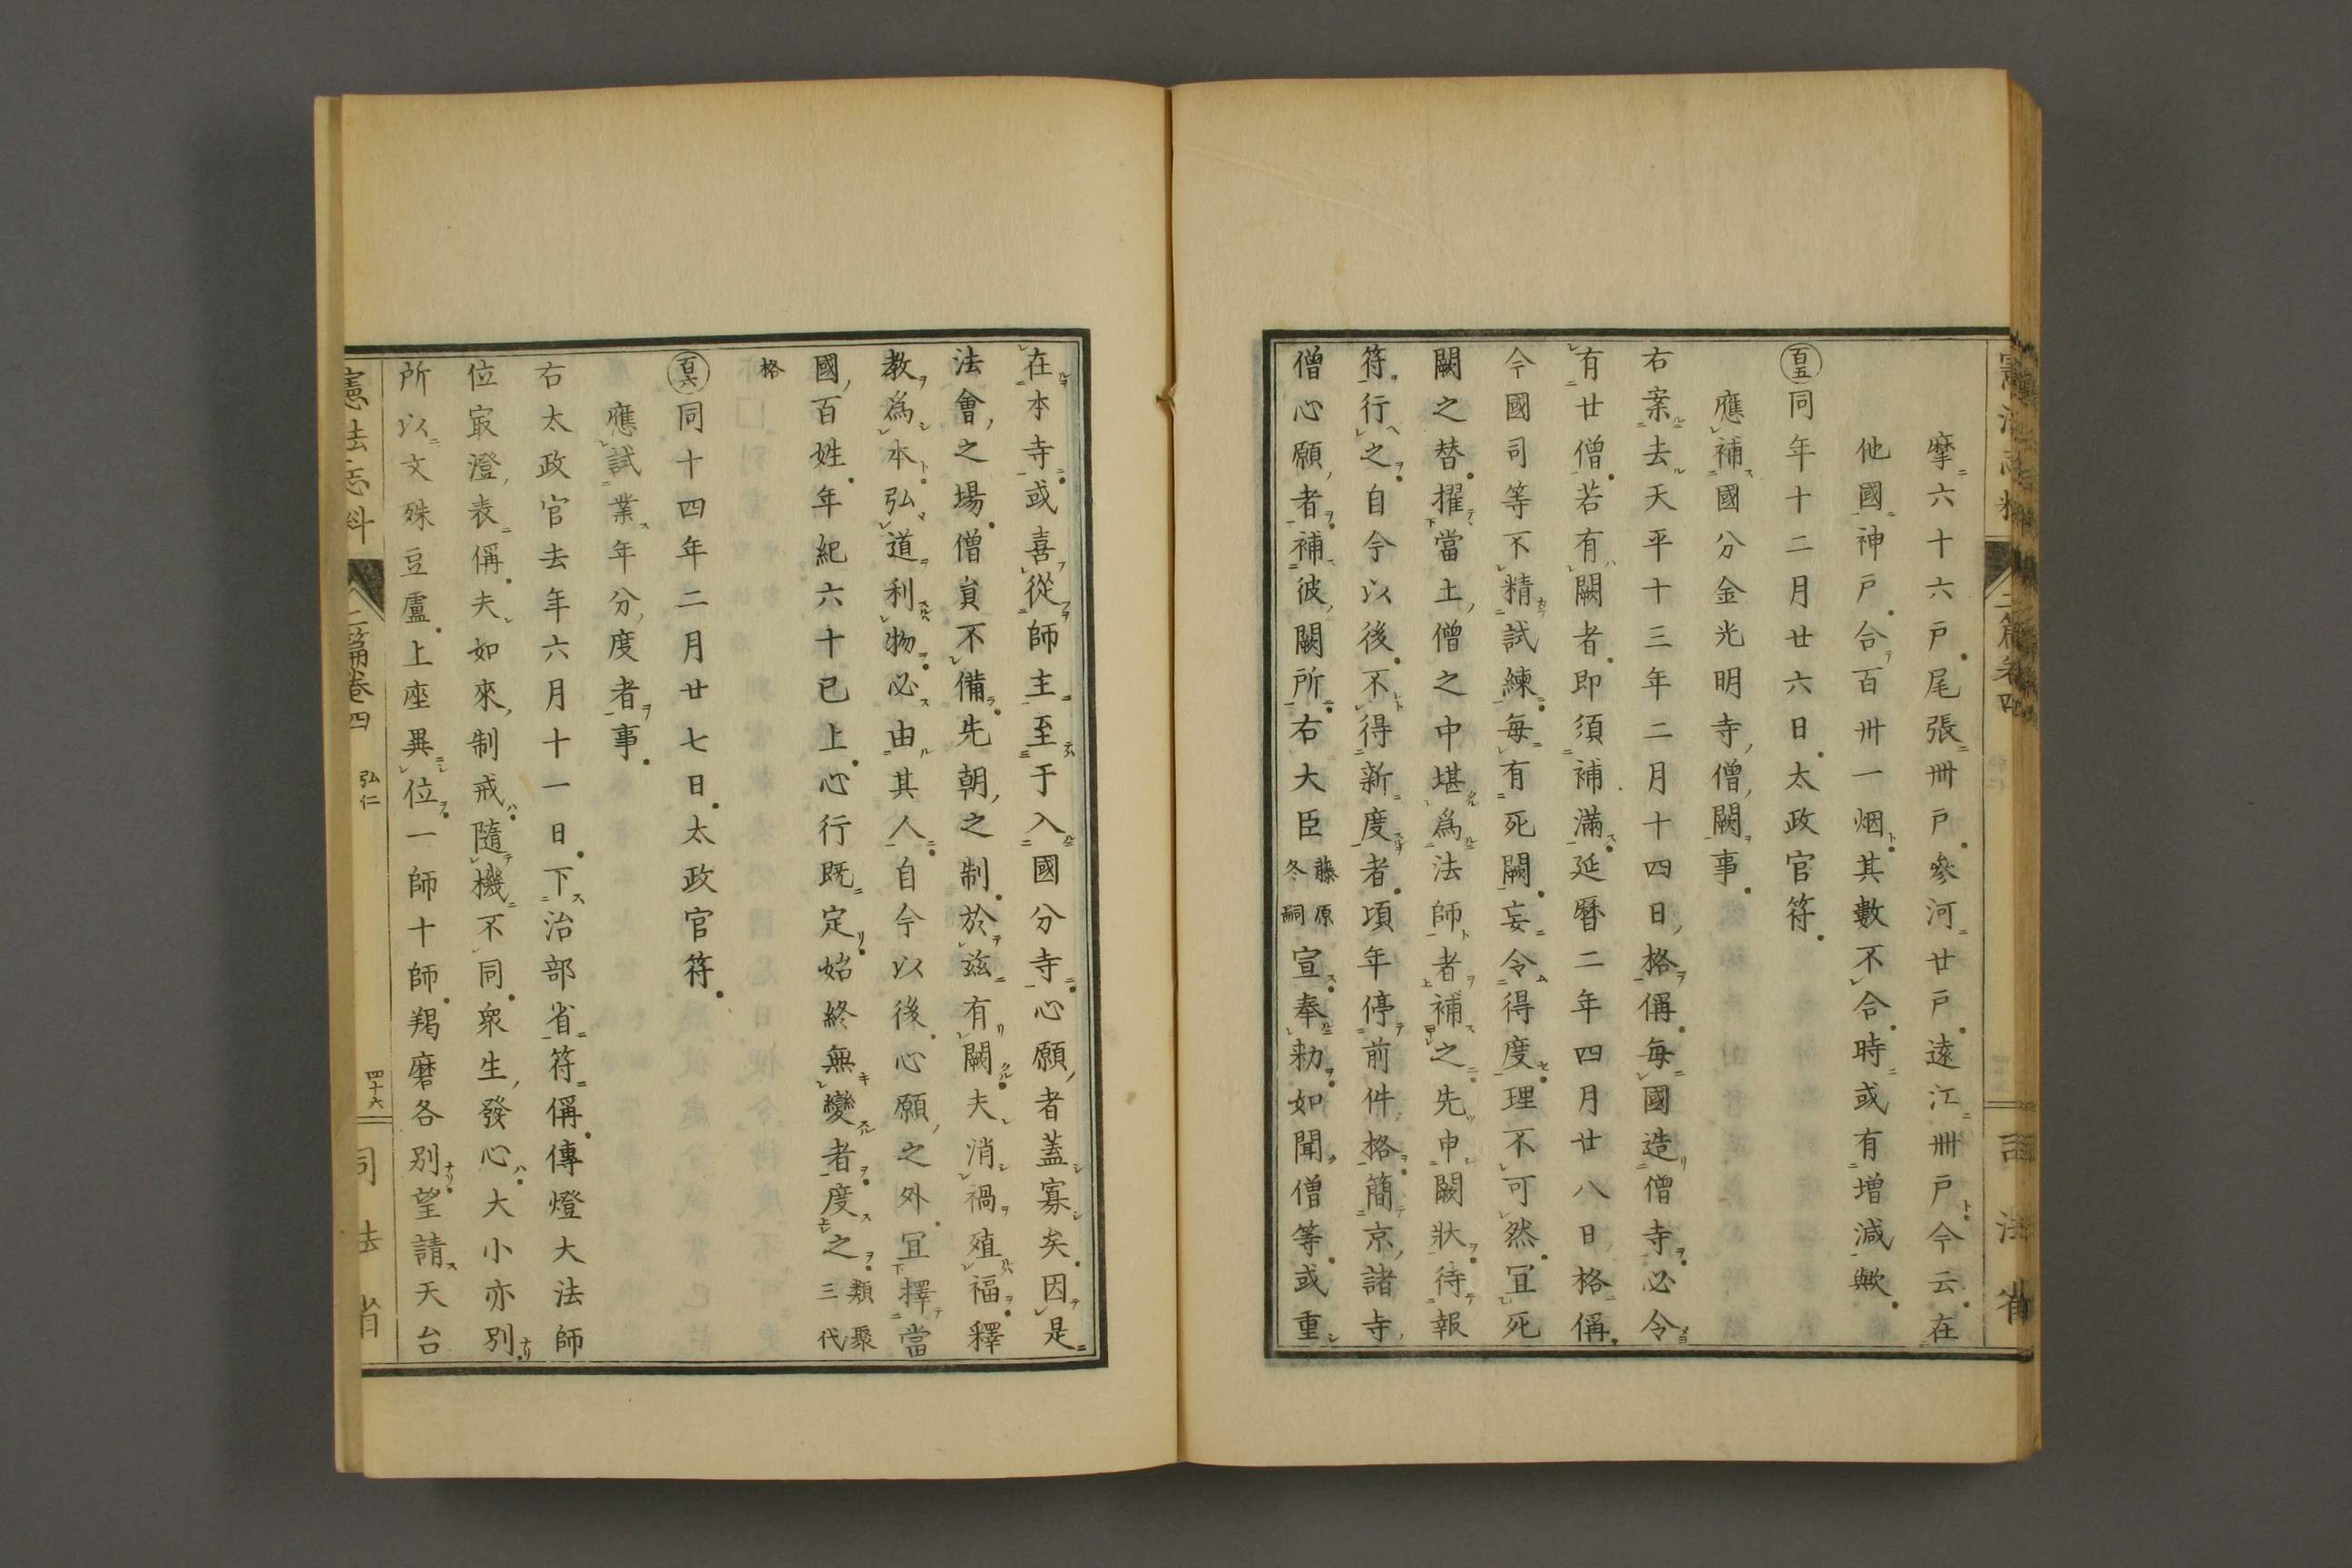 憲法志料 二篇卷四 司法省
摩六十六戸尾張卌戸參河廿戸遠江卌戸今云在
他國神戸合百卅一烟其數不合時或有增減歟
百五 同年十二月廿六日太政官符
應補國分金光明寺僧闕事
右案去天平十三年二月十四日格偁每國造僧寺必令
有廿僧若有闕者即須補滿延曆二年四月廿八日格偁
今國司等不精試練每有死闕妄令得度理不可然宜死
闕之替擢當土僧之中堪爲法師者補之先申闕狀待報
符行之自今以後不得新度者頃年停前件格簡京諸寺
僧心願者補彼闕所右大臣藤原冬嗣宣奉勅如聞僧等或重
在本寺或喜從師主至于入國分寺心願者蓋寡矣因是
法會之場僧員不備先朝之制於茲有闕夫消禍殖福釋
教爲本弘道利物必由其人自今以後心願之外宜擇當
國百姓年紀六十已上心行既定始終無變者度之類聚三代
格
百六 同十四年二月廿七日太政官符
應試業年分度者事
右太政官去年六月十一日下治部省符偁傳燈大法師
位㝡澄表偁夫如來制戒隨機不同衆生發心大小亦別
所以文殊豆盧上座異位一師十師羯磨各別望請天台
憲法志料 二篇卷四 弘仁 四十六 司法省